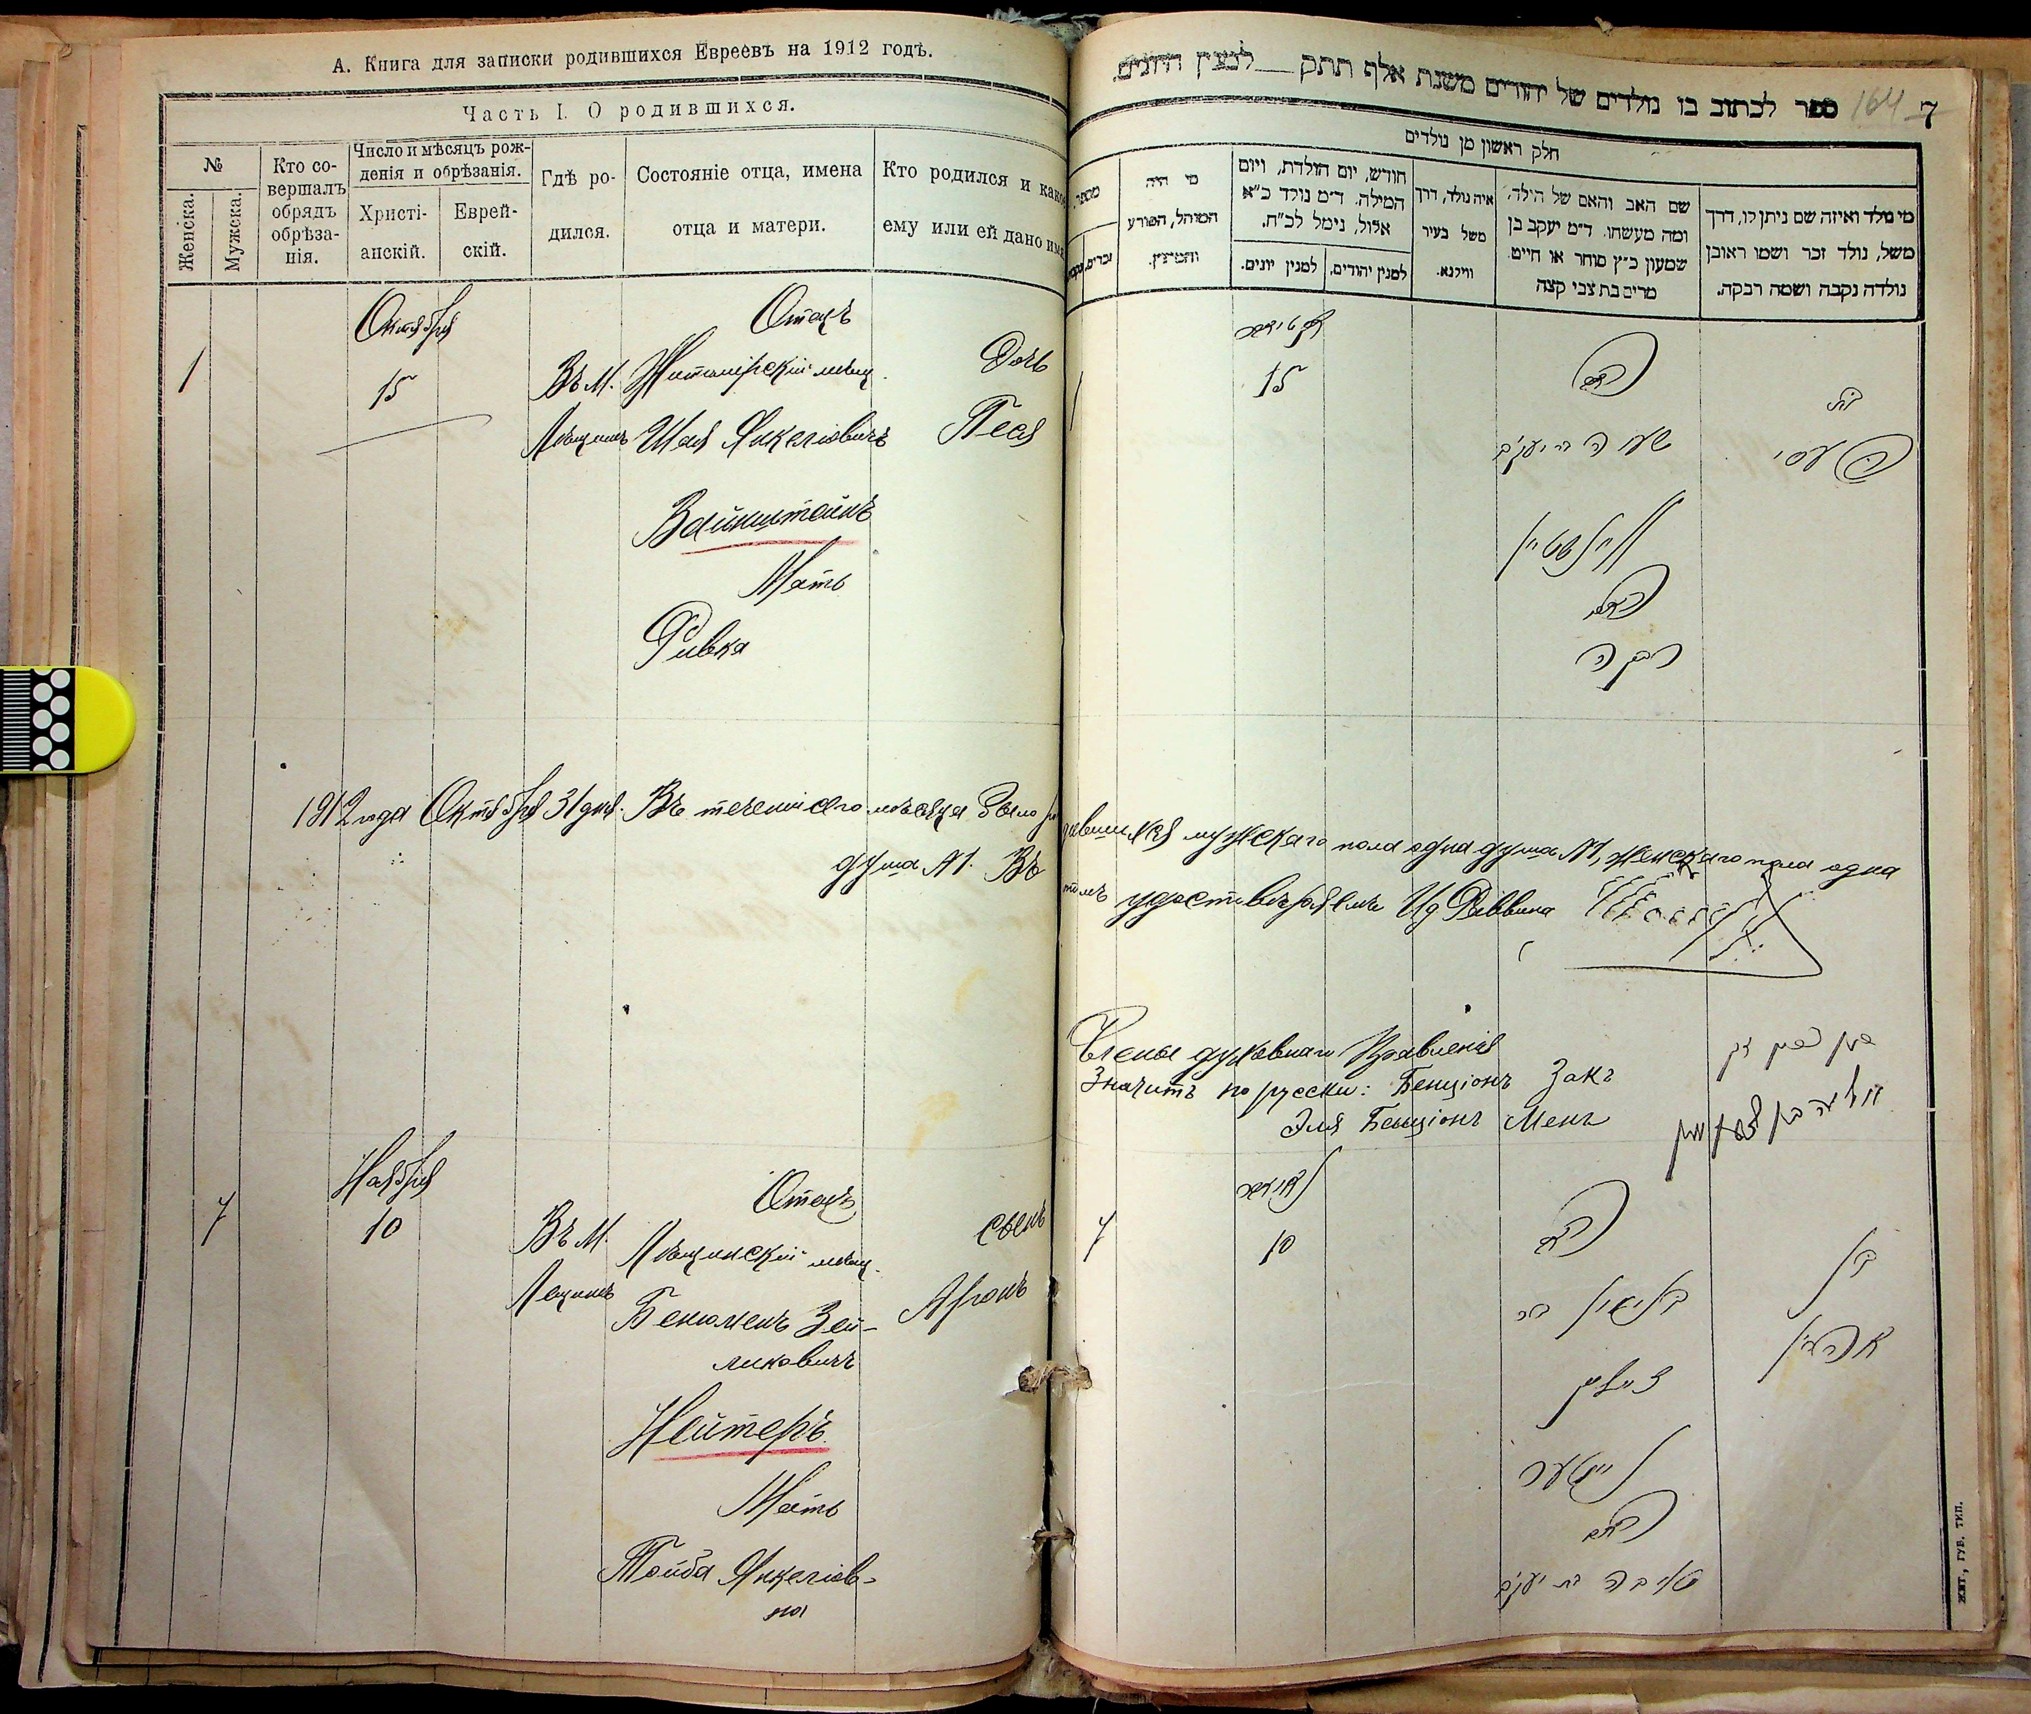 А. Книга для записки родившихся Евреевъ на 1912 годѣ.
Часть I. О родившихся.
№
Женска.
Мужска.
Кто со-
вершалъ
обрядъ
обрѣза-
нія.
Число и мѣсяцъ рож-
денія и обрѣзанія.
Христі-
анскій.
Еврей-
скій.
Гдѣ ро-
дился.
Состояніе отца, имена
отца и матери.
Кто родился и какое
ему или ей дано имя
Октября
1
15
Въ М.
Лещинъ
Отецъ
Житомірскій мѣщ.
Шая Янкелювичъ
Вайнштейнъ
Мать
Ривка
Дочь
Песя
1912 года Октября 31 дня. Въ теченіи сего мѣсяца было ро
душа №1. Въ
Ноября
7
10
Въ М.
Лещинъ
Отецъ
Лѣщинскій мѣщ.
Бенюменъ Зей-
ликовичъ
Нейтеръ
Мать
Тойба Янкеліов-
на
сынъ
Аронъ
ספר לכתוב בו נולדים של יהודים משנת אלף תתק לנצין היונים.
164
7
חלק ראשון מן נולדים
מספר.
זכרים,
מי היה
המוהל, הפורע
והמוצץ.
חודש, יום הולדת, ויום
המילה. ד״מ נולד כ״א
אלול, נימל לכ״ח.
למנין יונים.
למנין יהודים,
איה נולד, דרך
משל בעיר
ווילנא.
שם האב והאם של הילד,
ומה מעשהו. ד״מ יעקב בן
שמעון כ״ץ סוחר או חייט
מרים בת צבי קצה
מי נולד ואיזה שם ניתן לו, דרך
משל, נולד זכר ושמו ראובן
נולדה נקבה ושמה רבקה.
1
אקטיאבר
15
האב
שעיה בר יעקב
וויינשטיין
האם
רבקה
בת
פעסי
дившихся мужскаго пола одна душа №1, женскаго пола одна
томъ удостовѣряемъ Ид Раввина
Члены духовнаго Правленія
Значитъ по русски: Бенціонъ Закъ
Эля Бенціонъ Менъ
7
נאיאבר
10
האב
בנימין בר
זייליק
נייטער
האם
טויבה בת יעקב
בן
אהרן
ЖИТ., ГУБ. ТИП.